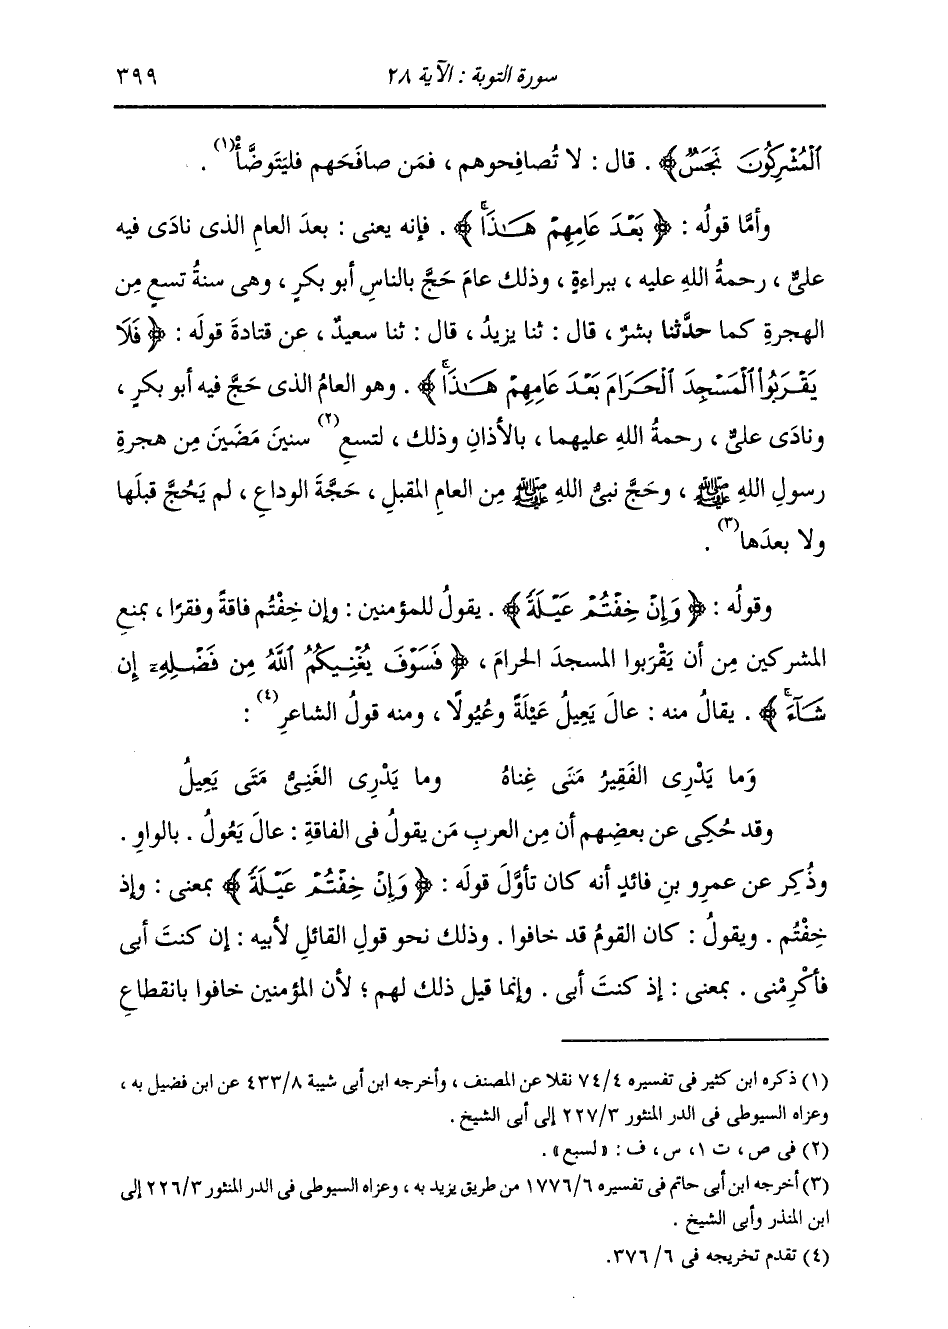 سورة التوبة : الآية ٢٨ ٣٩٩
ٱلْمُشْرِكُونَ نَجَسٌ﴾ . قال : لا تُصافِحوهم ، فمَن صافَحَهم فليَتَوضَّأْ(١) .
وأمَّا قولُه : ﴿ بَعْدَ عَامِهِمْ هَـٰذَاۚ ﴾ . فإنه يعنى : بعدَ العامِ الذى نادَى فيه
علىٌّ ، رحمةُ اللهِ عليه ، ببراءةٍ ، وذلك عامَ حَجَّ بالناسِ أبو بكرٍ ، وهى سنةُ تسعٍ مِن
الهجرةِ كما حدَّثنا بشرٌ ، قال : ثنا يزيدُ ، قال : ثنا سعيدٌ ، عن قتادةَ قولَه : ﴿ فَلَا
يَقْرَبُوا۟ ٱلْمَسْجِدَ ٱلْحَرَامَ بَعْدَ عَامِهِمْ هَـٰذَاۚ ﴾ . وهو العامُ الذى حَجَّ فيه أبو بكرٍ ،
ونادَى علىٌّ ، رحمةُ اللهِ عليهما ، بالأذانِ وذلك ، لتسعِ(٢) سنينَ مَضَينَ مِن هجرةِ
رسولِ اللهِ ﷺ ، وحَجَّ نبىُّ اللهِ ﷺ مِن العامِ المقبلِ ، حَجَّةَ الوداعِ ، لم يَحُجَّ قبلَها
ولا بعدَها(٣) .
وقولُه : ﴿ وَإِنْ خِفْتُمْ عَيْلَةً ﴾ . يقولُ للمؤمنين : وإن خِفْتُم فاقةً وفقرًا ، بمنعِ
المشركين مِن أن يَقْرَبوا المسجدَ الحرامَ ، ﴿ فَسَوْفَ يُغْنِيكُمُ ٱللَّهُ مِن فَضْلِهِۦٓ إِن
شَآءَۚ ﴾ . يقالُ منه : عالَ يَعِيلُ عَيْلَةً وعُيُولًا ، ومنه قولُ الشاعرِ(٤) :
وَما يَدْرِى الفَقِيرُ مَتَى غِناهُ وما يَدْرِى الغَنِىُّ مَتَى يَعِيلُ
وقد حُكِى عن بعضِهم أن مِن العربِ مَن يقولُ فى الفاقةِ : عالَ يَعُولُ . بالواوِ .
وذُكِر عن عمرِو بنِ فائدٍ أنه كان تأوَّلَ قولَه : ﴿ وَإِنْ خِفْتُمْ عَيْلَةً ﴾ بمعنى : وإذ
خِفْتُم . ويقولُ : كان القومُ قد خافوا . وذلك نحو قولِ القائلِ لأبيه : إن كنتَ أبى
فأكْرِمْنى . بمعنى : إذ كنتَ أبى . وإنما قيل ذلك لهم ؛ لأن المؤمنين خافوا بانقطاعِ
(١) ذكره ابن كثير فى تفسيره ٧٤/٤ نقلا عن المصنف ، وأخرجه ابن أبى شيبة ٤٣٣/٨ عن ابن فضيل به ،
وعزاه السيوطى فى الدر المنثور ٢٢٧/٣ إلى أبى الشيخ .
(٢) فى ص ، ت ١، س ، ف : «لسبع» .
(٣) أخرجه ابن أبى حاتم فى تفسيره ١٧٧٦/٦ من طريق يزيد به ، وعزاه السيوطى فى الدر المنثور ٢٢٦/٣ إلى
ابن المنذر وأبى الشيخ .
(٤) تقدم تخريجه فى ٦/ ٣٧٦.